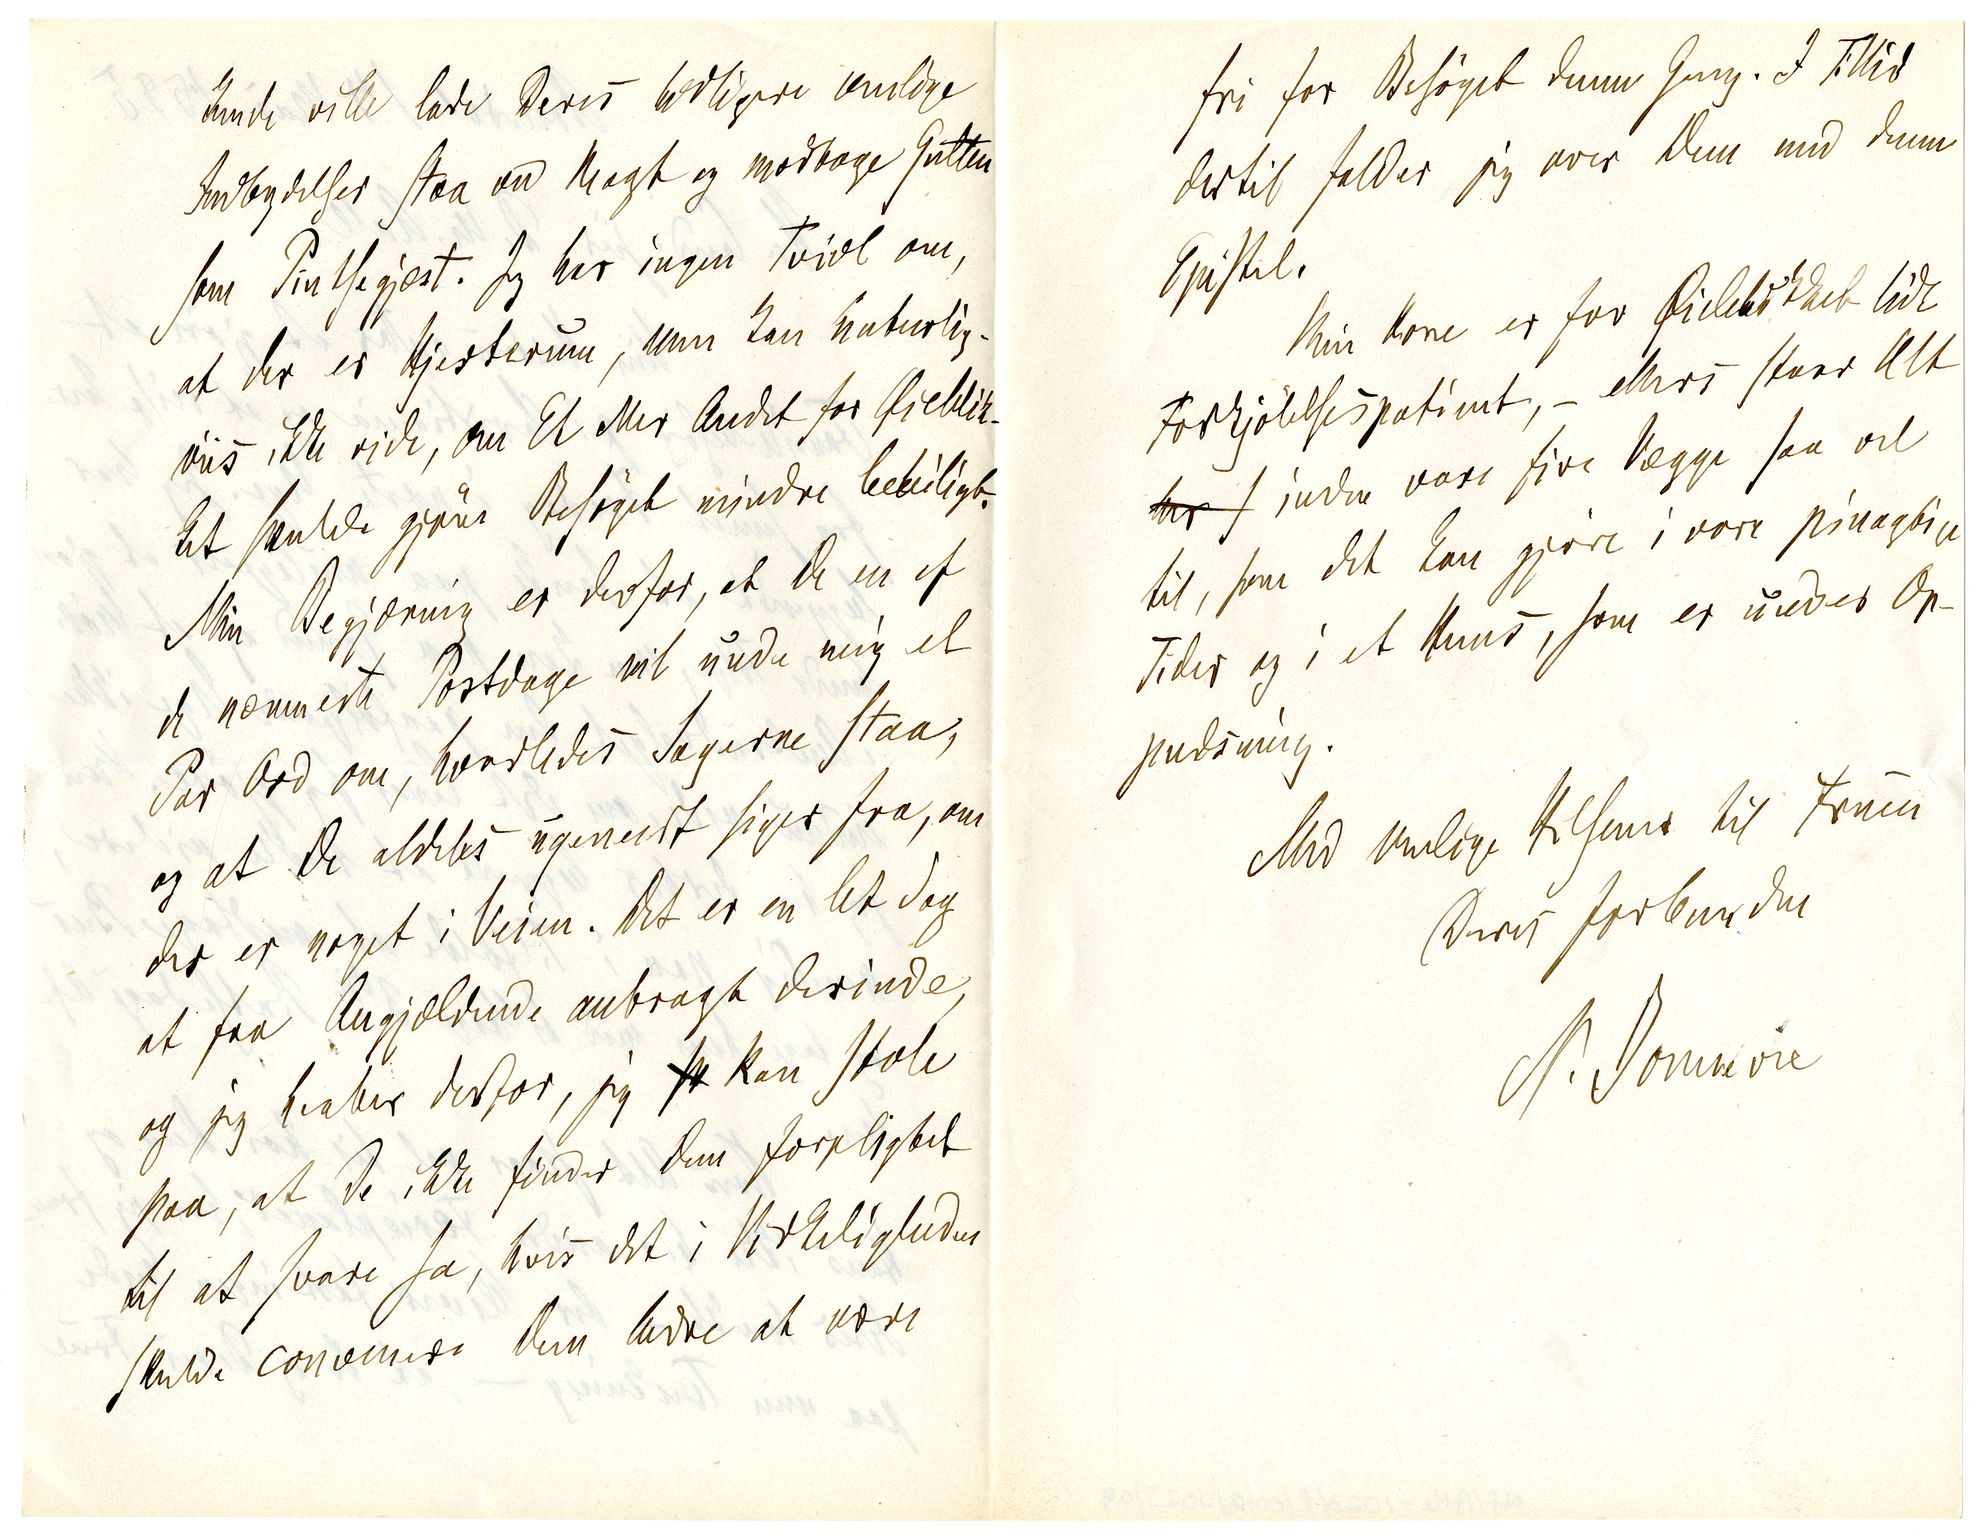 kunde ville lade Deres tidligere venlige
Indbydelser staa ved Magt og modtage Gutten
som Pintsegjæst. Jeg har ingen Tvivl om,
at der er Hjerterum, men kan naturlig-
viis ikke vide, om Et eller Andet for Øieblik-
ket skulde gjøre Besøget mindre beleiligt.
Min Begjæring er derfor, at De en af
de nærmeste Postdage vil unde mig et
Par Ord om, hvorledes Sagerne staa,
og at De aldeles ugeneert siger fra, om
der er noget i Veien. Det er en let Sag
at faa Angjældende anbragt derinde,
og jeg haaber derfor, jeg kan stole
paa, at De ikke finder Dem forpligtet
til at svare Ja, hvis det i Virkeligheden
skulde convenere Dem bedre at være
fri for Besøget denne Gang. I Tillid
dertil falder jeg over Dem med denne
Epistel.
Min Kone er for Øieblikket lidt
Forkjølelsespatient, – ellers staar Alt
inden vore fire Vægge saa vel
til, som det kan gjøre i vore pinagtige
Tider og i et Huus, som er under Op-
pudsning.
Med venlige Hilsener til Fruen
Deres forbundne